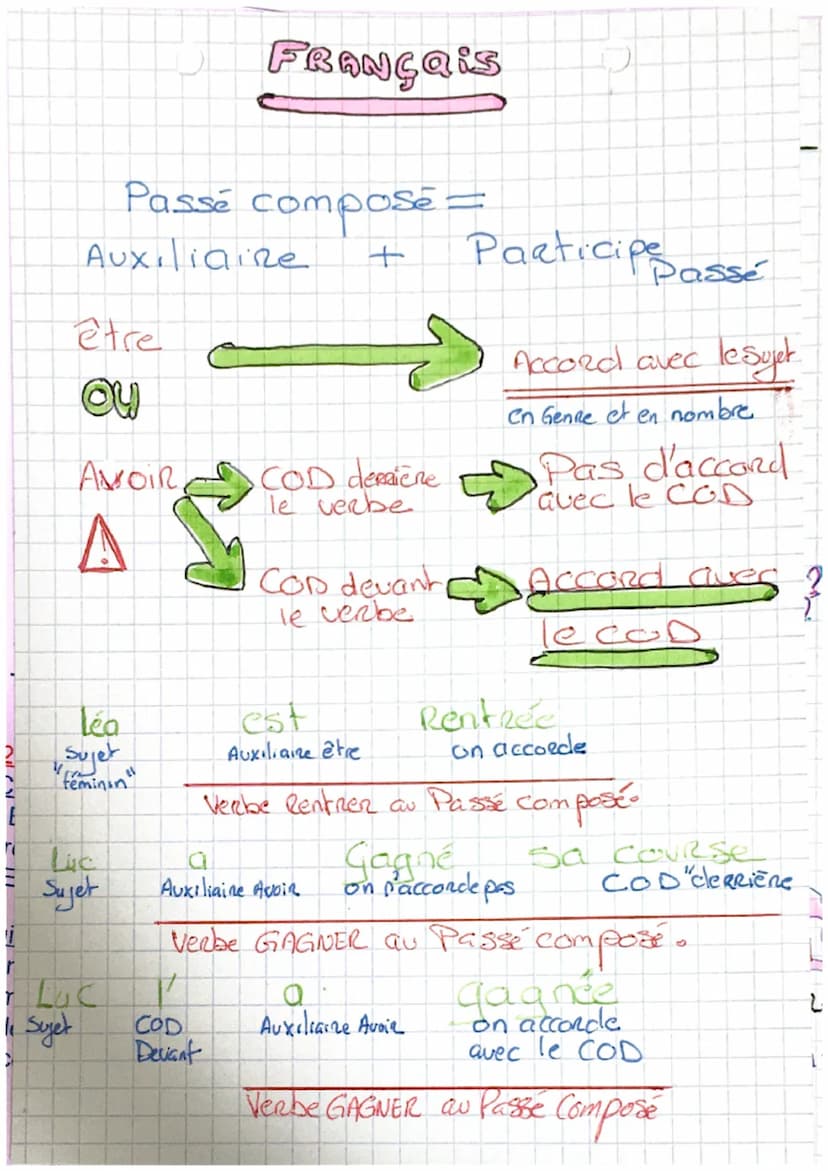 FRANÇais
Passé composé =
Auxiliaire + Participe Passé
être
Accord avec le sujet
OU
en Genre et en nombre
AVOIR
COD derrière
le verbe
Pas d'accord
avec le COD
!
COD devant
le verbe
Accord avec
le COD
?
?
léa est Rentrée
Sujet Auxiliaire être on accorde
"féminin"
Verbe Rentrer au Passé composé.
Luc a Gagné sa course
Sujet Auxiliaire Avoir on n'accorde pas COD "derrière
Verbe GAGNER au Passé composé.
Luc l' a gagnée
Sujet COD Auxiliaire Avoir on accorde
Devant avec le COD
Verbe GAGNER au Passé Composé